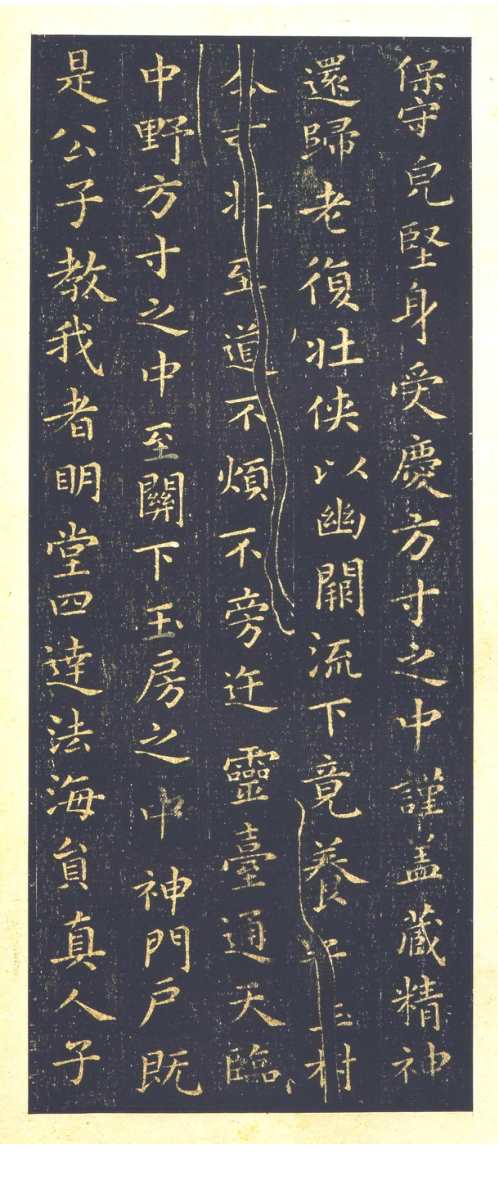 保守皃堅身受慶方寸之中謹盖藏精神
還歸老復壯俠以幽闕流下竟養子玉村
令可壯至道不煩不旁迕靈臺通天臨
中野方寸之中至關下玉房之中神門戶既
是公子教我者眀堂四達法海員真人子